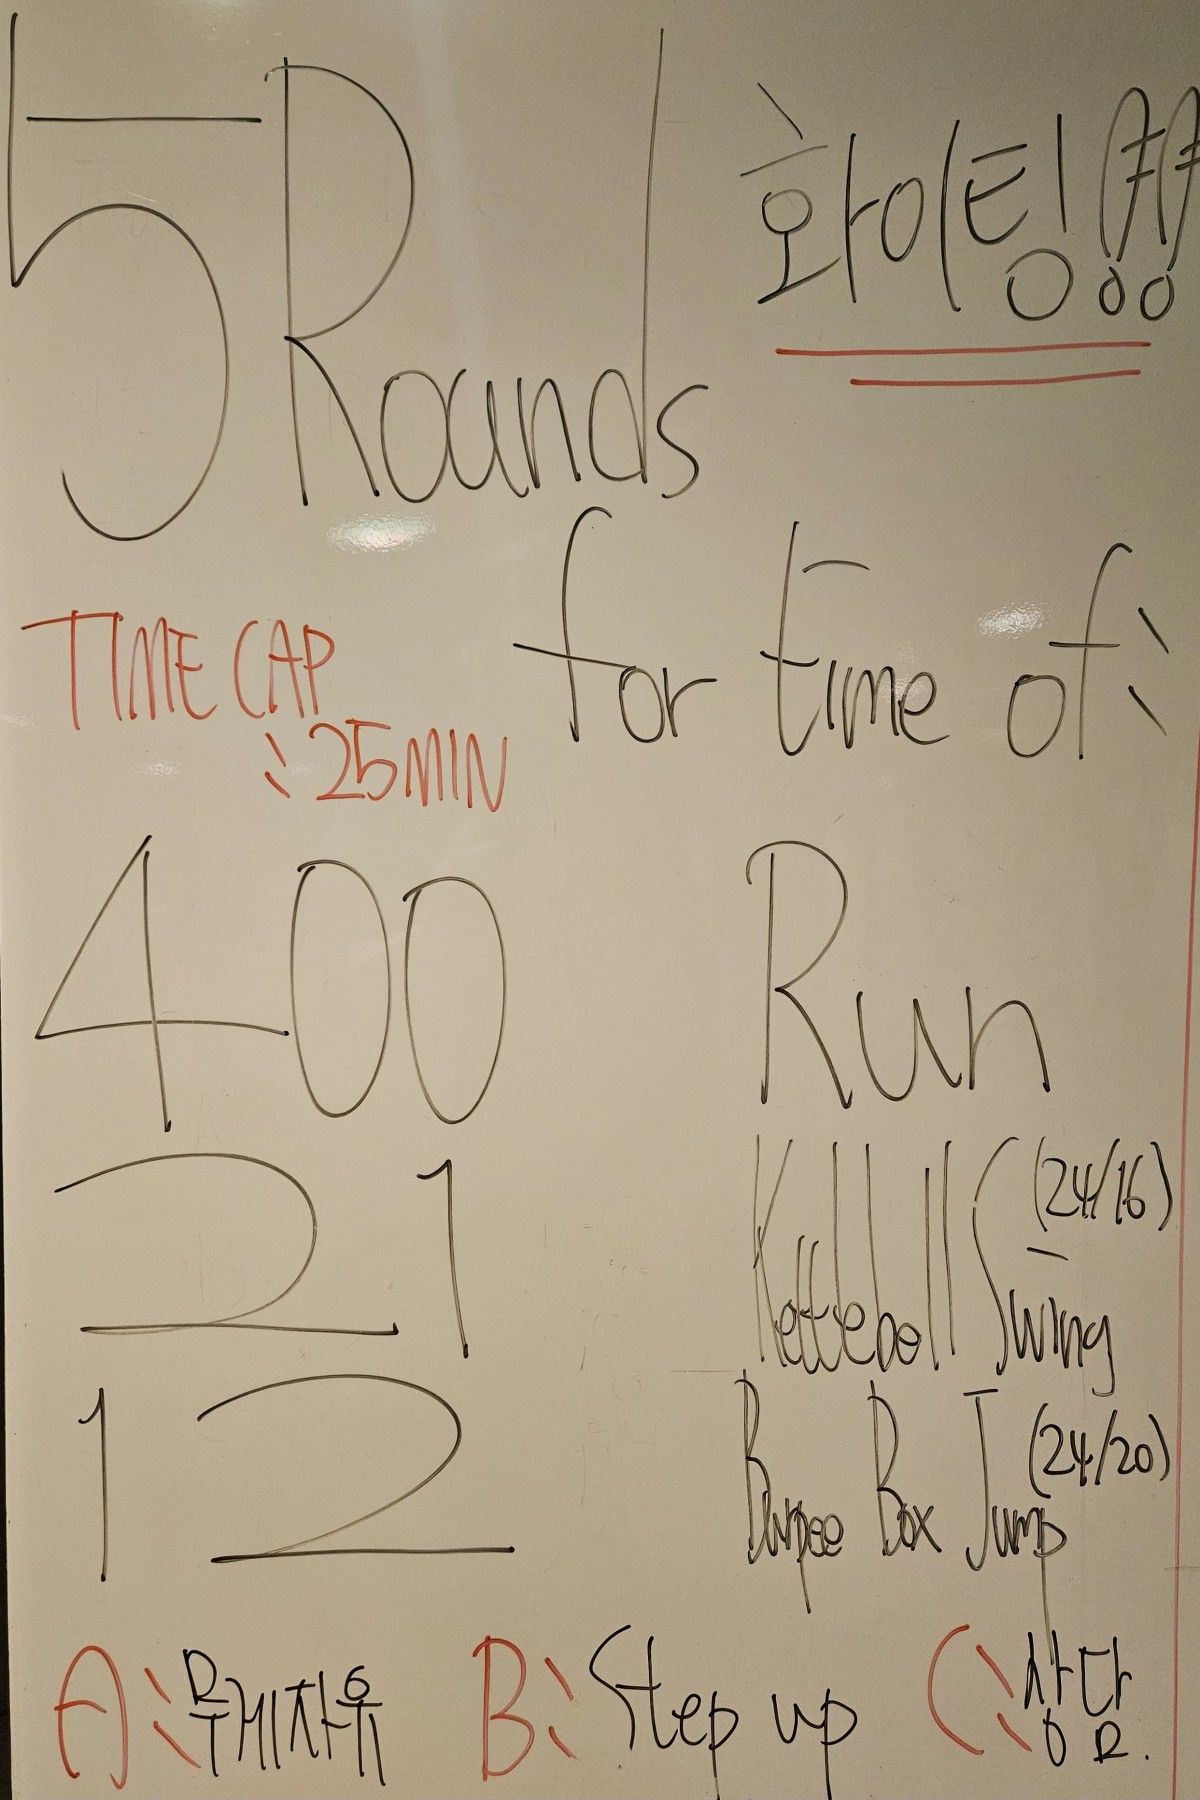 5 Rounds
화이팅!!
for time of:
TIME CAP
: 25MIN
400 Run
21 Kettlebell Swing (24/16)
12 Burpee Box Jump (24/20)
A: 무게자유 B: Step up C: 상담.